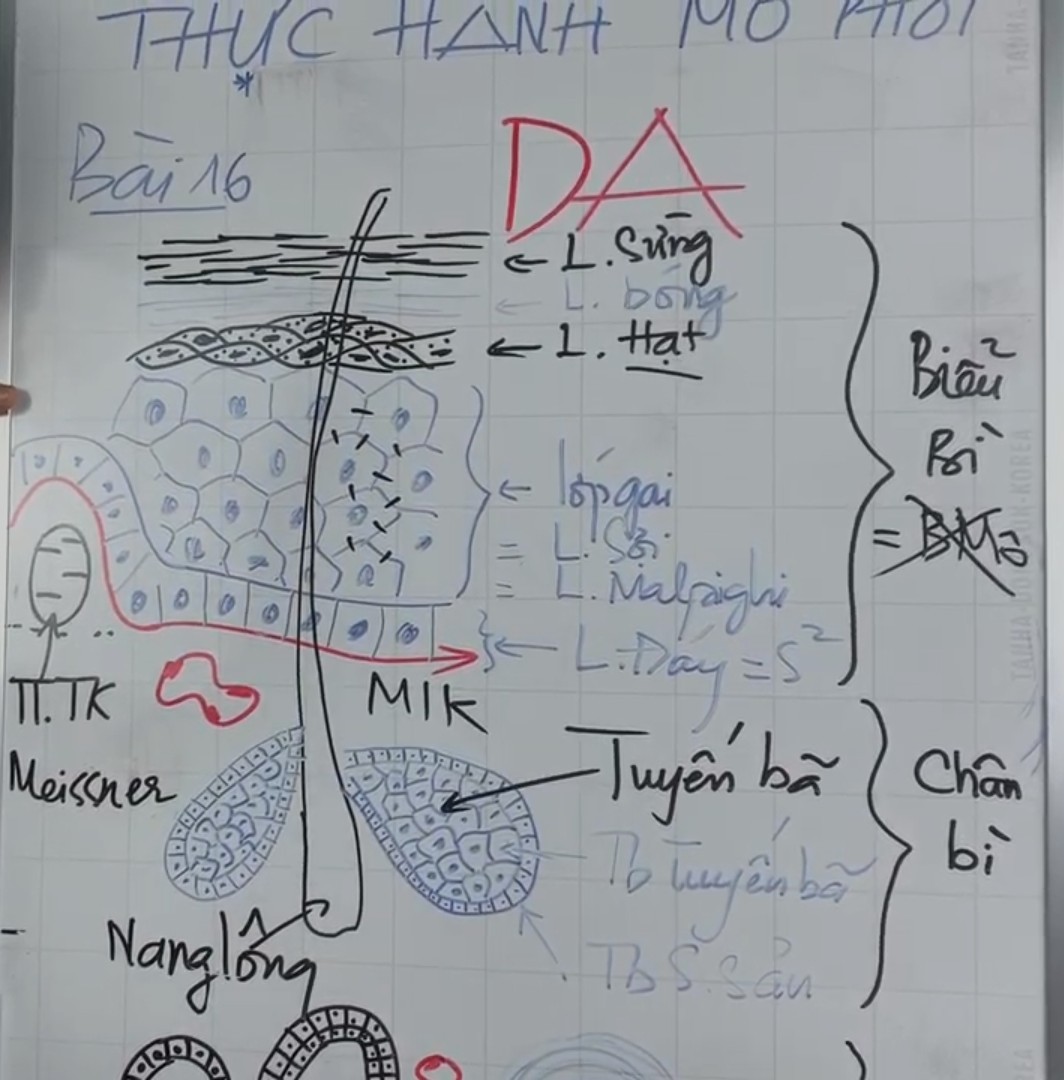 THỰC HÀNH MÔ PHÔI
*
Bài 16
DA
← L. Sừng
← L. bóng
← L. Hạt
Biểu
Bì
= BMô
← lớp gai
= L. Sợi
= L. Malpighi
← L. Đáy = S²
TT.TK
Meissner
MLK
Tuyến bã
Tb Tuyến bã
Tb S. Sản
Chân
bì
Nang lông